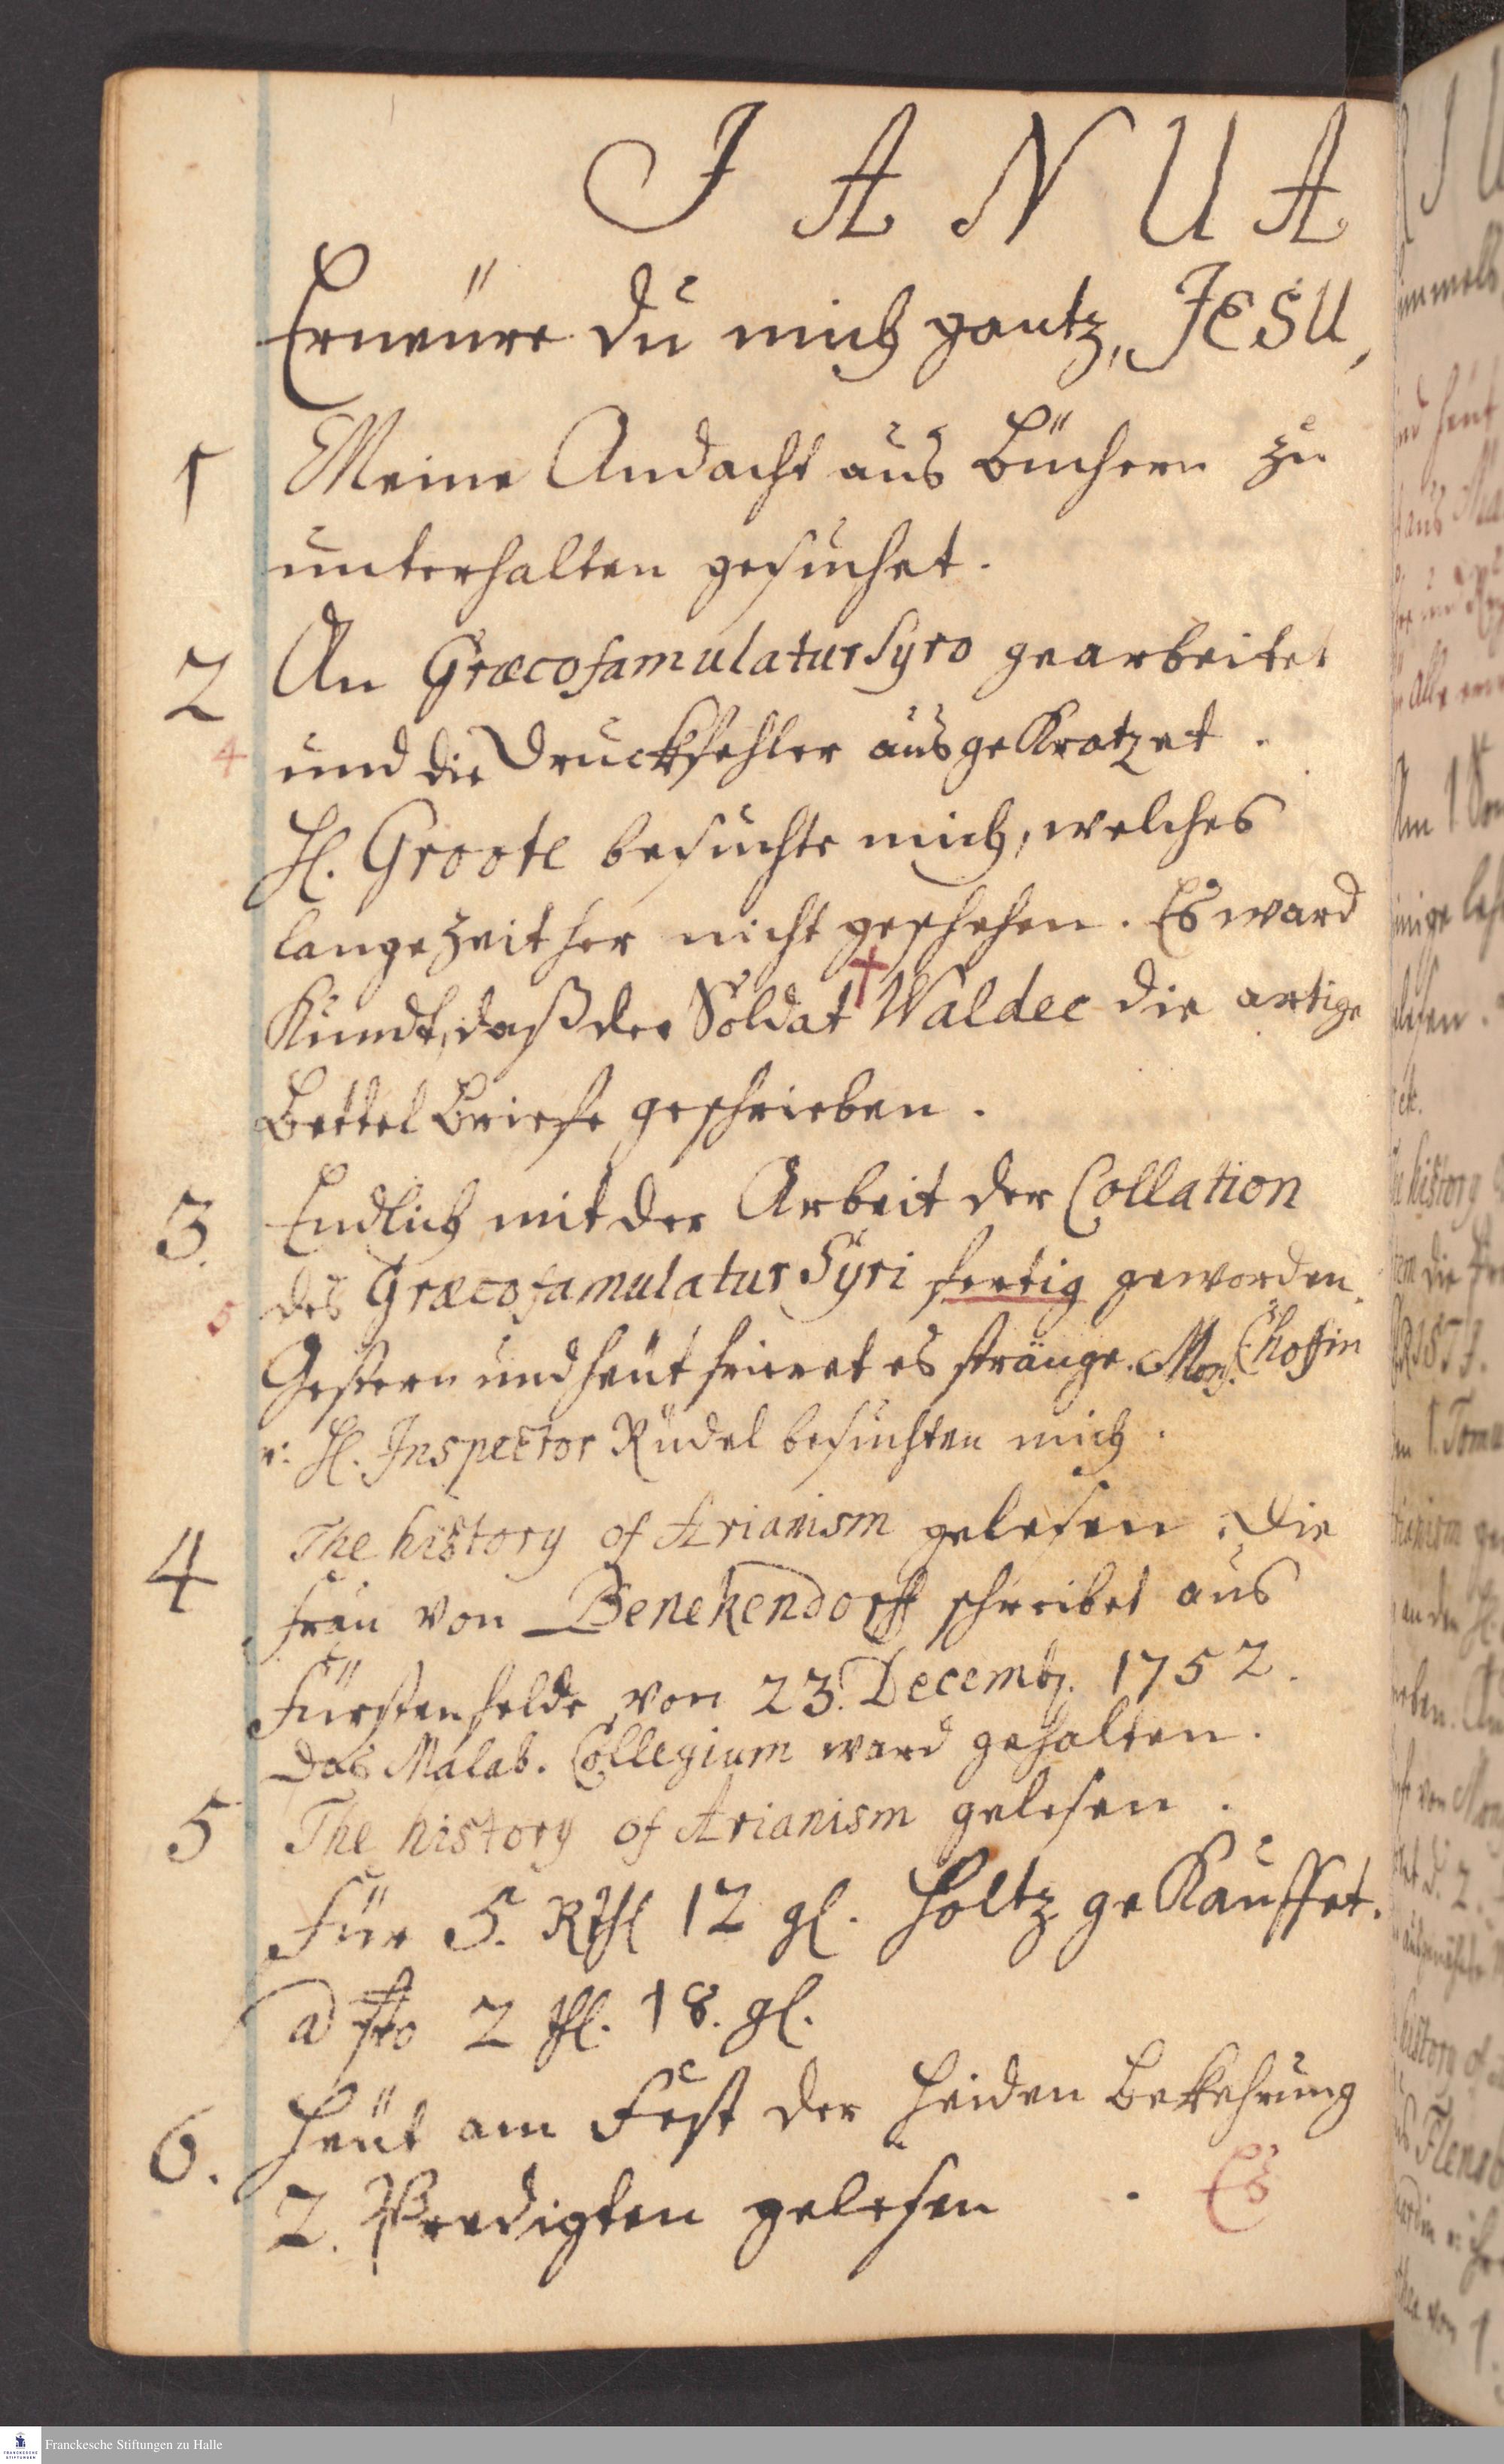 J A N U A
Erneüre du mich gantz, JESU,
1 Meine Andacht aus Büchern zu
unterhalten gesuchet.
2 An GræcofamulaturSyro gearbeitet
4 und die Druckfehler ausgekratzet.
H. Groote besuchte mich, welches
lange Zeit her nicht geschehen. Es ward
Kundt, daß der Soldat † Waldec die artige
Bettel Briefe geschrieben.
3. Endlich mit der Arbeit der Collation
5 des Græcofamulatur Syri fertig geworden.
Gestern und heüt frieret es stränge. Mons. Choffin
u: H. Inspector Rudel besuchten mich.
4 The history of Arianism gelesen. Die
Frau von Benekendorff schreibet aus
Fürstenfelde von 23. Decemb. 1752.
Das Malab. Collegium ward gehalten.
5 The history of Arianism gelesen.
Für 5. Rthl 12 gl. Holtz gekauffet.
a 2 thl. 18. gl.
6. Heüt am Fest der Heiden Bekehrung
2. Predigten gelesen. Es
Franckesche Stiftungen zu Halle